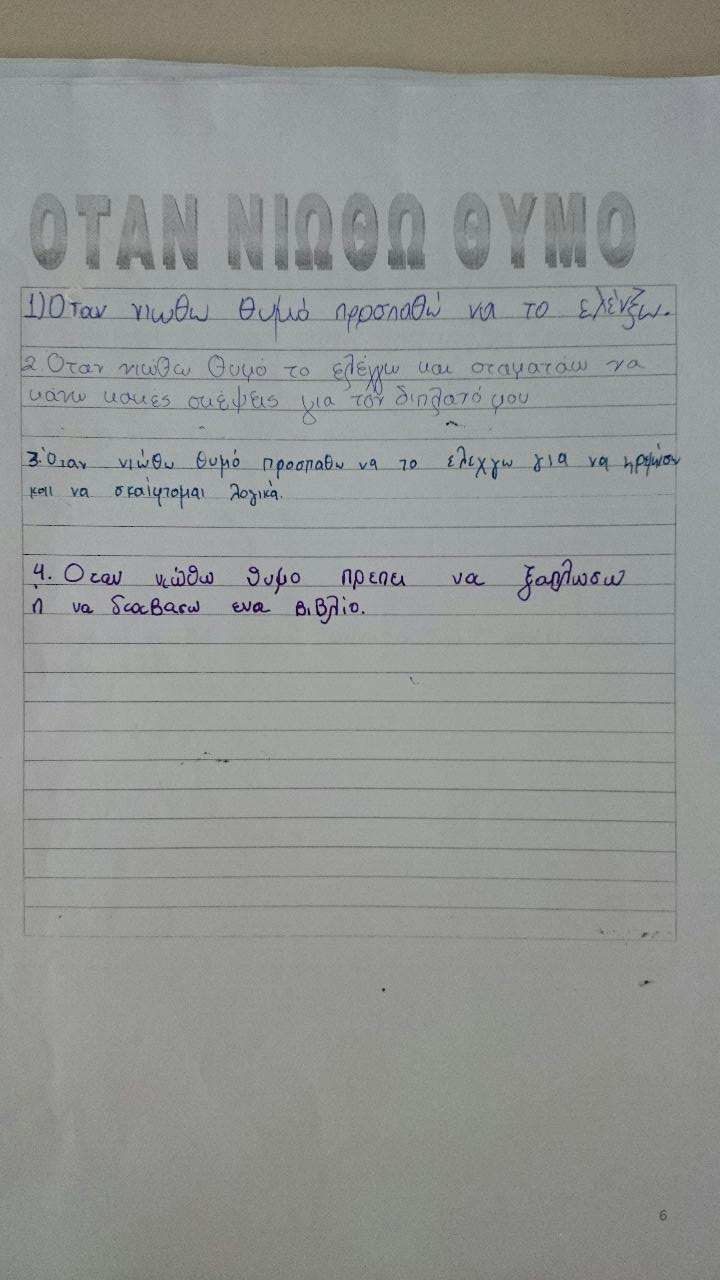 ΟΤΑΝ ΝΙΩΘΩ ΘΥΜΟ
1) Όταν νιωθω θυμό προσπαθώ να το ελένξω.
2. Οταν νιώθω θυμό το ελέγγω και σταματάω να
κάνω κακες σκέψεις για τον διπλατό μου
3. Όταν νιώθω θυμό προσπαθω να το ελεχγω για να ηρεμίσω
και να σκαίφτομαι λογικά.
4. Οταν νιώθω θυμο πρεπει να ξαπλωσω
ή να διαβασω ενα βιβλίο.
6